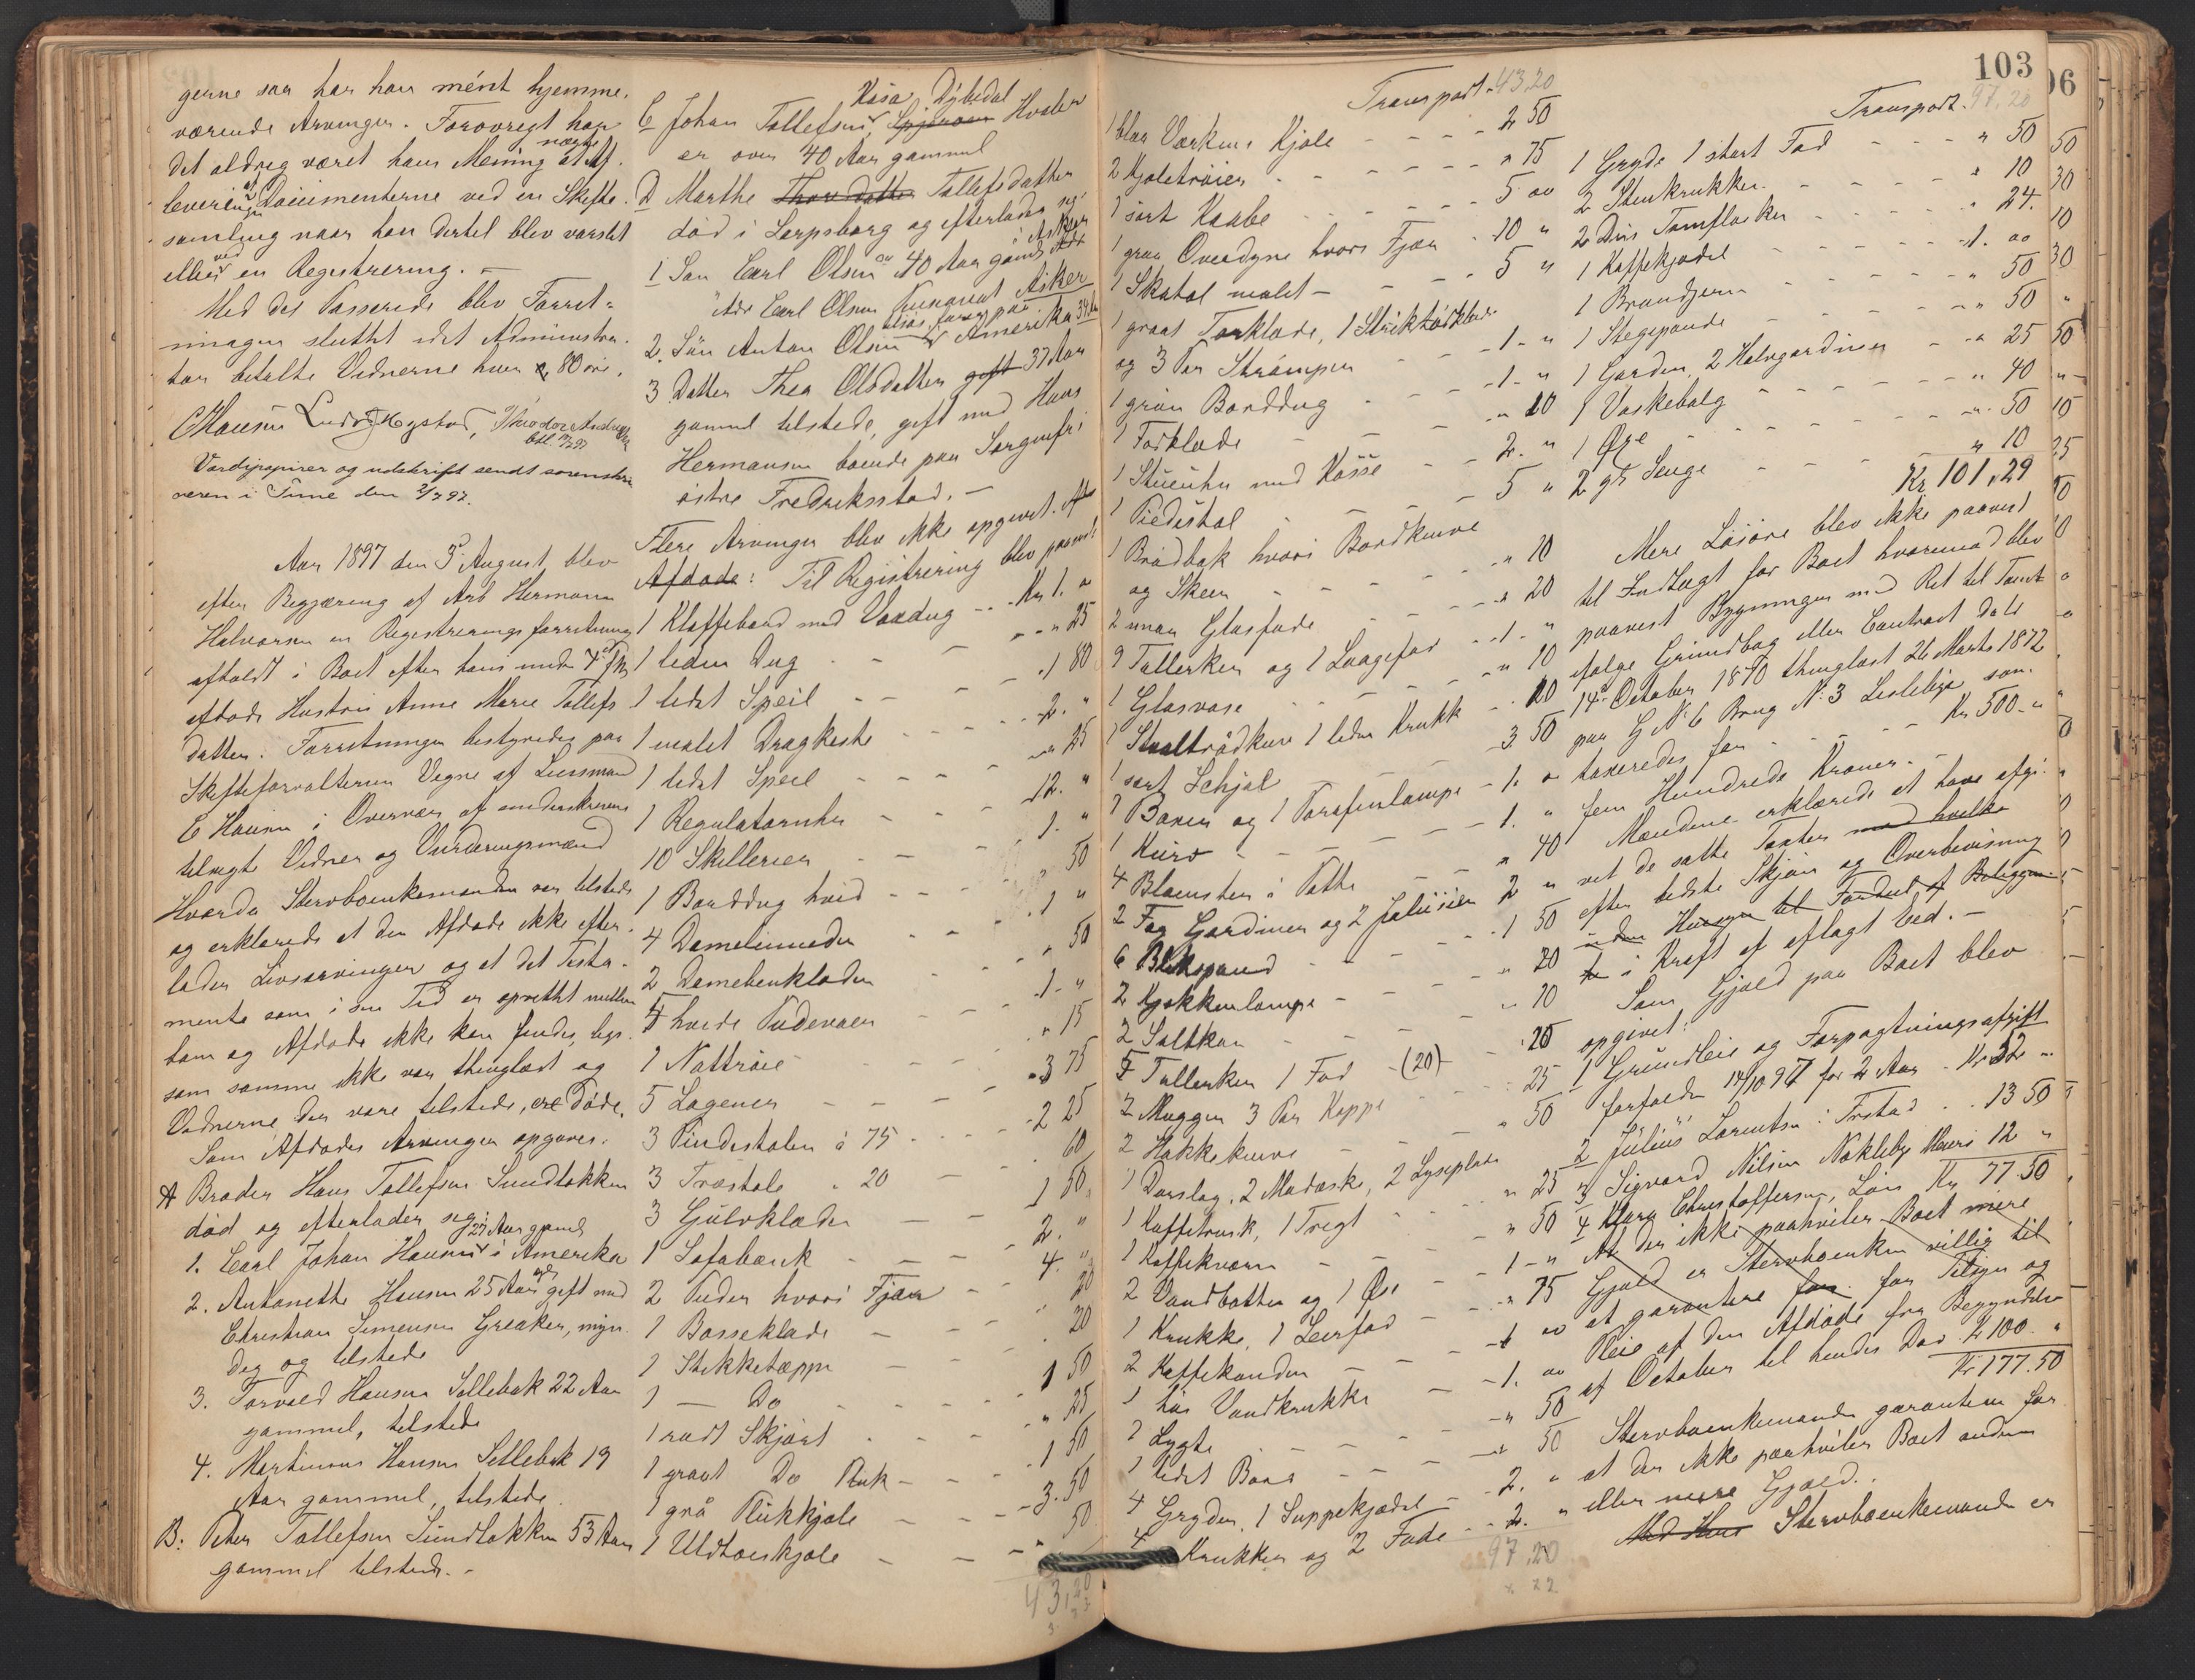 gerne saa har han ment hjemme-
værende Arvinger. Forøvrigt har
det aldrig været hans Mening at nægte Af-
levering af Documenterne ved en Skifte-
samling naar han dertil blev varslet
eller ved en Registrering. -
Med det Passerede blev Forret-
ningen sluttet idet Administra-
tor betalte Vidnerne hver 80 øre.
C Hansen Ludv. Hystad, Theodor Andersen
Værdipapirer og udskrift sendt sorenskri
veren i Tune den 2/7 97.
Aar 1897 den 3 August blev
efter Begjæring af Arb Hermann
Halvorsen en Registreringsforretning
afholdt i Boet efter hans under 7 d. M.
afdøde Hustru Anne Marie Tollefs
datter. Forretningen bestyredes paa
Skifteforvalterens Vegne af Lensmand
C Hansen i Overvær af underskrevne
tilsagte Vidner og Vurderingsmænd
Hvorda Stervboenkemanden var tilstede
og erklærede at den Afdøde ikke efter-
lader Livsarvinger og at det Testa-
mente som i sin Tid er oprettet mellem
ham og Afdøde ikke kan findes, lige-
som samme ikke var thinglæst og
Vidnerne der vare tilstede, ere døde.
Som Afdødes Arvinger opgaves:
A Broder Hans Tollefsen Sundløkken
død og efterlader sig:
1. Carl Johan Hansen 27 Aar gamel i Amerika
2. Antonette Hansen 25 Aar gl gift med
Christian Simensen Greaker, myn-
dig og tilstede
3. Torvald Hansen Sellebak 22 Aar
gammel, tilstede
4. Martinius Hansen Sellebak 19
Aar gammel, tilstede.
B: Peter Tollefsen Sundløkken 53 Aar
gammel tilstede. -
C Johan Tollefsen, Kasa Dybedal Hvaler
er over 40 Aar gammel
D Marthe Thoredatter Tollefsdatter
død i Sarpsborg og efterlader sig:
1 Søn Carl Olsen 40 Aar gaml i Asker
Adr Carl Olsen Asker
2. Søn Anton Olsen i Amerika 34 Aar
3 Datter Thea Olsdatter gift 37 Aar
gammel tilstede, gift med Hans
Hermansen boende paa Sorgenfri
østre Fredriksstad. -
Flere Arvinger blev ikke opgivet. Efter
Afdøde: Til Registrering blev paavist
1 Klaffebord med Voxdug - - Kr 1. "
1 liden Dug - - - " 25
1 lidet Speil - - - 1 80
1 malet Dragkiste - - - 2. "
1 lidet Speil - - - " 25
1 Regulatoruhr - - - 12. "
10 Skillerier - - - 1. "
1 Borddug hvid - - - " 50
4 Damelinneder - - - 1 "
2 Damebenklæder - - - " 50
4 hvide Pudevaer - - - 1 - "
1 Nattrøie - - - " 15
5 Lagener - - - 3 75
3 Pindestoler à 75 - - - 2 25
3 Træstole " 20 - - - 60
3 Gulvklæder - - - 1 50
1 Sofabænk - - - 2. "
2 Puder hvori Fjær - 4. "
1 Bosseklæde - - - 20
1 Stikketæppe - - - 20
1 - Do - - - 1 50
1 rødt Skjørt - - - " 25
1 graat Do Ruk - - - 1 50
1 grå Flukkjole - - - 3. 50
1 Uldtøiskjole - - - " 50
43,20
103
Transport. 43,20
1 blaa Værkens Kjole - - - 2 50
2 Kjoletrøier - - - " 75
1 sort Kaabe - - - 5 oo
1 graa Overdyne hvori Fjær - 10 "
1 Skatol malet - - - 5 "
1 graat Tørklæde, 1 Striktørklæde
og 3 Par Strømper - - 1 - "
1 grøn Borddug - - - 1 - "
1 Forklæde - - - " 10
1 Stueuhr med Kasse - - 2. "
1 Piedistal - - - 5 "
1 Brødbak hvori Bordknive
og Skeer - - - " 10
2 smaa Glasfade - - - " 20
9 Tallerken og 1 Laagefad - - 1 - "
1 Glasvase - - - " 10
1 Staaltraadkurv 1 liden Krukk - " 20
1 sort Schjal - - - 3 50
1 Boxer og 1 Parafinlampe - 1. o
1 Kurv - - - 1. "
4 Blomster i Potte - - - " 40
2 Fag Gardiner og 2 Jalusier 2 "
6 Blikspand - - - 1 50
2 Kjøkkenlampe - - - " 20
2 Saltkar - - - " 10
5 Tallerken 1 Fad - (20) - " 20
2 Mugger 3 Par Kopper - - " 25
2 Hakkeknive - - - " 50
1 Dørslag, 2 Madæske, 2 Lyseplade
1 Kaffetrank, 1 Tragt - - " 25
1 Kaffekværn - - - " 50
2 Vandbøtter og 1 Øse - - 1 - "
1 Krukke, 1 Leirfad - - " 75
2 Kaffekander - - - 1 oo
1 høi Vandkrukke - - 1. oo
1 Lygte - - - " 50
1 lidet Bord - - - " 50
4 Gryder, 1 Suppekjædel - - 2. "
4 Krukker og 2 Fade - - 2. "
97,20
Transport. 97,20
1 Gryde 1 stort Fad - - - " 50
2 Stenkrukker - - - " 10
2 Dus Tomflasker - - - " 24.
1 Kaffekjedel - - - 1. oo
1 Brandjern - - - " 50
1 Stegepande - - - " 50
1 Gardin, 2 Halvgardiner - - " 25
1 Vaskebalg - - - " 40
1 Øxe - - - " 50
2 gl Senge - - - " 10
Kr 101,29
Mere Løsøre blev ikke paavist
til Indtægt for Boet hvorimod blev
paavist Bygningen med Ret til Tomt
ifølge Grundbog eller Contract dat
14 October 1870 thinglæst 26 Marts 1872
paa G No 6 Brug No 3 Lisleby som
taxeredes for - - - Kr 500 - "
fem Hundrede Kroner. -
Mændene erklærede at have afgi-
vet de satte Taxter med hvilke
efter bedste Skjøn og Overbevisning
i Kraft af aflagt Eed. -
Som Gjæld paa Boet blev
opgivet:
1 Grundleie og Forpagtningsafgift
forfalden 14/10 97 for 2 Aar - Kr 52 "
2 Julius Lorentsen i Frstad - - 13 50
3 Sigvard Nilsen Nøkleby 12 "
4 Klara Christoffersen, Løn Kr 77.50
At der ikke paahviler Boet mere
Gjæld er Stervboenken villig til
at garantere for Tilsyn og
Pleie af den Afdøde fra Begyndelse
af October til hendes Død Kr 100. "
Kr 177.50
Stervboenkemanden garanterer for
at der ikke paahviler Boet anden
eller mere Gjæld. -
Med Hans Stervboenkemanden er